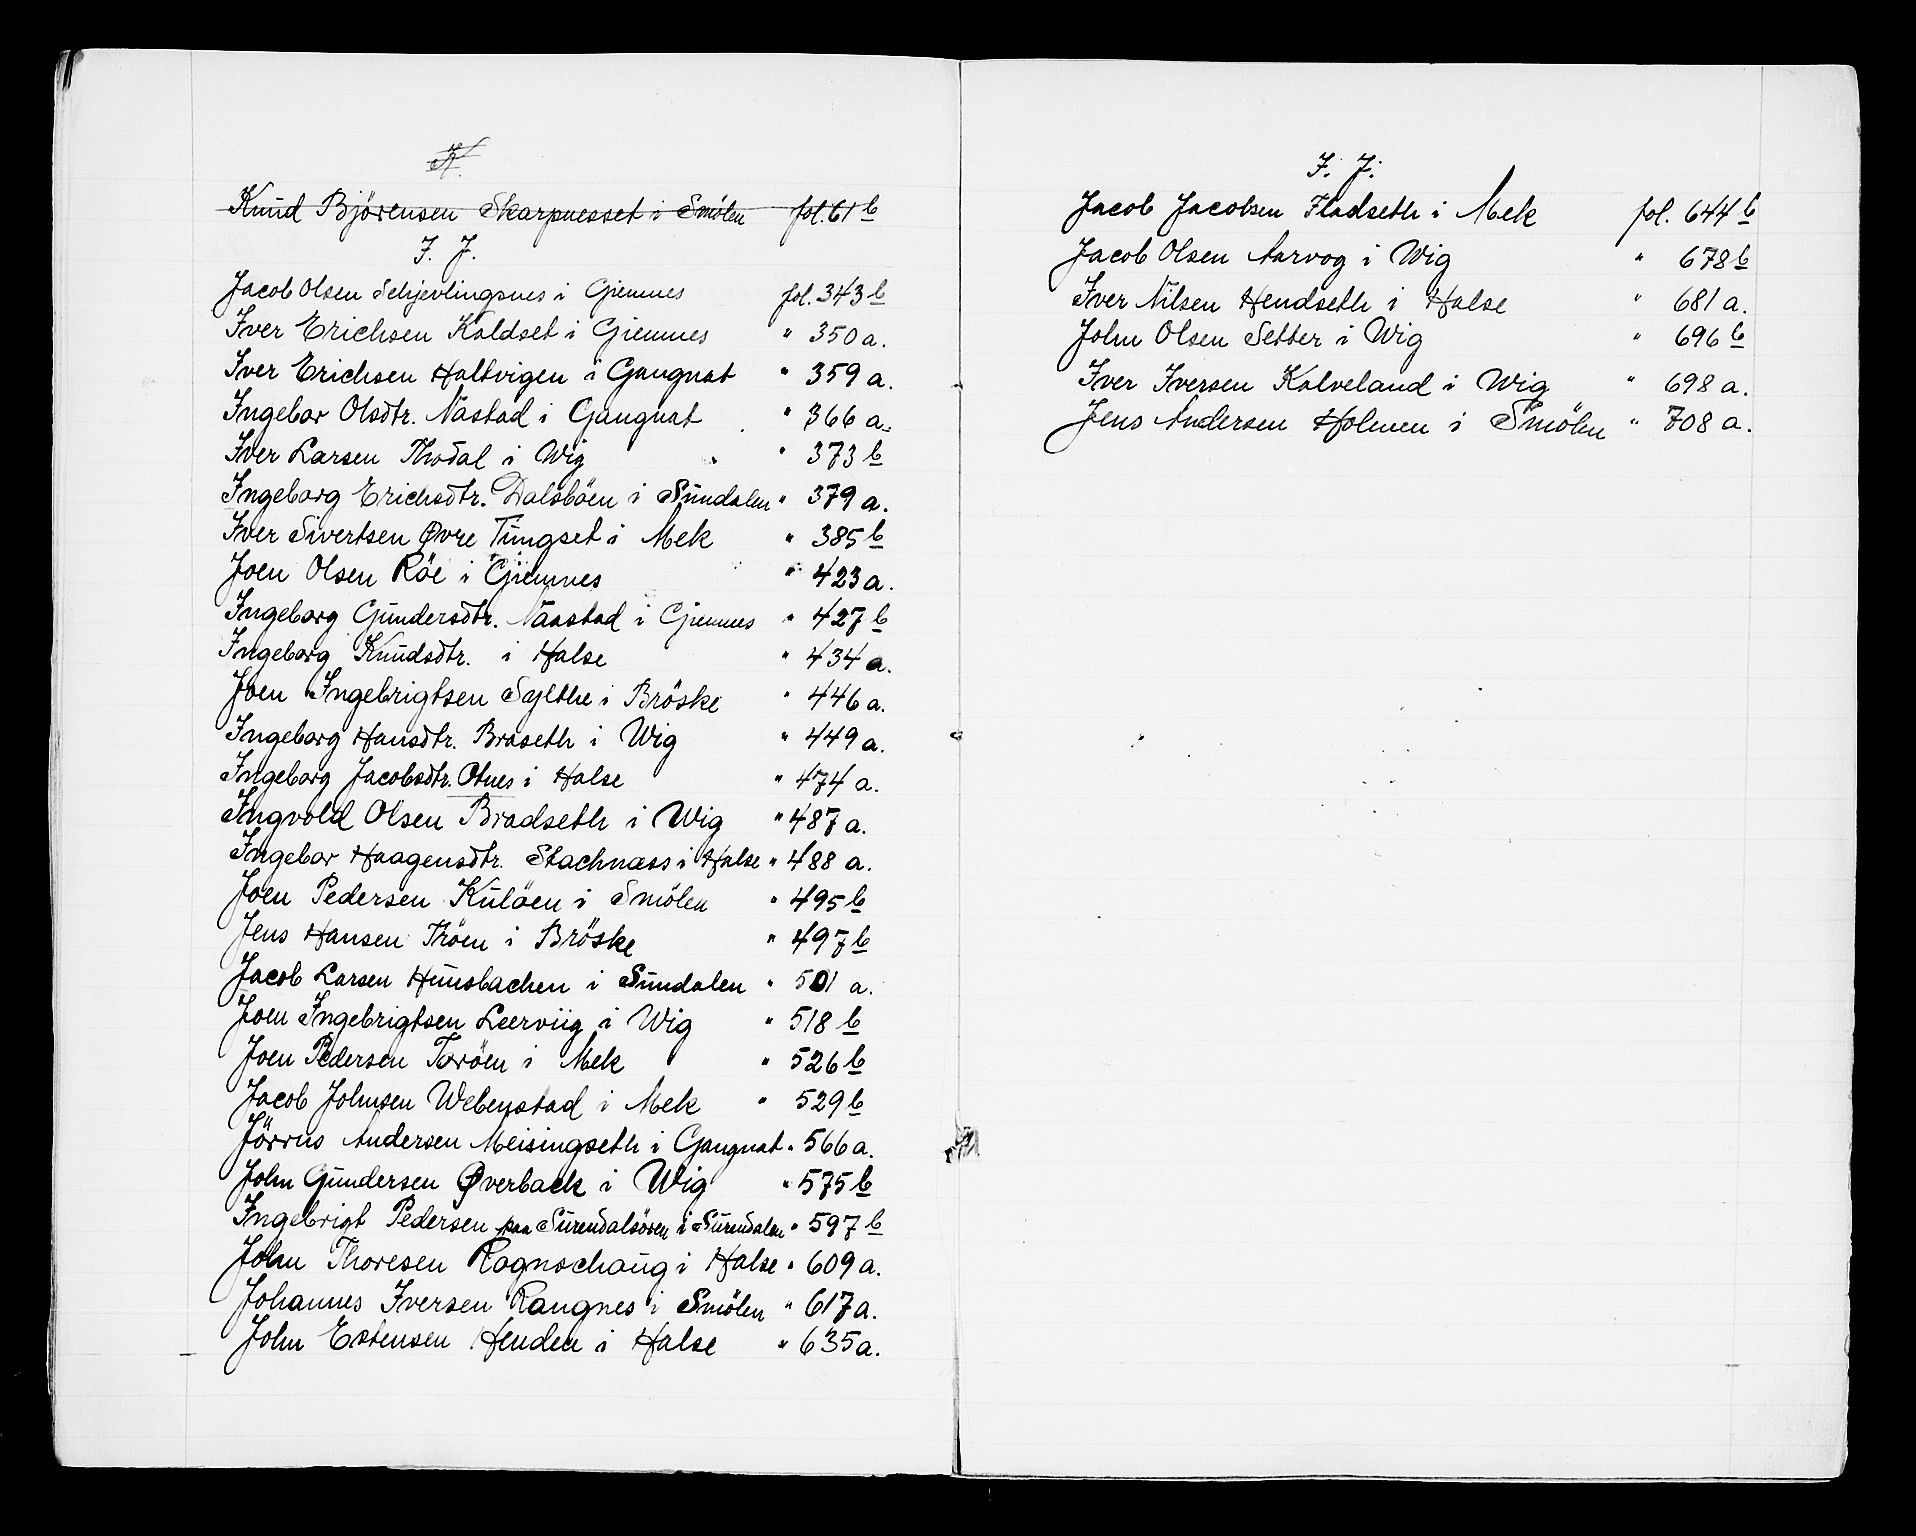 K.
Knud Bjørensen Skarpnesset i Smölen fol. 61 b
I. J.
Jacob Olsen Schjevlingsnes i Giemnes fol. 343 b
Iver Erichsen Koldset i Giemnes " 350 a.
Iver Erichsen Haltvigen i Gangnat " 359 a.
Ingebor Olsdtr. Nastad i Gangnat " 366 a.
Iver Larsen Thodal i Wig " 373 b
Ingeborg Erichsdtr. Dalsböen i Sundalen " 379 a.
Iver Sivertsen Øvre Tungset i Mek " 385 b
Joen Olsen Röe i Giemnes " 423 a.
Ingeborg Gundersdtr. Naastad i Gjemnes " 427 b
Ingeborg Knudsdtr. i Halse " 434 a.
Joen Ingebrigtsen Sylthe i Bröske " 446 a.
Ingeborg Hansdtr. Braseth i Wig " 449 a.
Ingeborg Jacobsdtr. Otnes i Halse " 474 a.
Ingvold Olsen Bradseth i Wig " 487 a.
Ingebor Haagensdtr. Stachnæss i Halse " 488 a.
Joen Pedersen Kulöen i Smölen " 495 b
Jens Hansen Tröen i Bröske " 497 b
Jacob Larsen Hunsbachen i Sundalen " 501 a.
Joen Ingebrigtsen Leerviig i Wig " 518 b
Joen Pedersen Toröen i Mek " 526 b
Jacob Johnsen Webenstad i Mek " 529 b
Jörrus Andersen Meisingseth i Gangnat " 566 a.
John Gundersen Øverback i Wig " 575 b
Ingebrigt Pedersen paa Surendalsören i Surendalen " 597 b
John Thoresen Rognschaug i Halse " 609 a.
Johannes Iversen Rangnes i Smölen " 617 a.
John Estensen Henden i Halse " 635 a.
I. J.
Jacob Jacobsen Fladseth i Mek fol. 644 b
Jacob Olsen Aarvog i Wig " 678 b
Iver Nilsen Hendseth i Halse " 681 a.
John Olsen Setter i Wig " 696 b
Iver Iversen Kalveland i Wig " 698 a.
Jens Andersen Holmen i Smölen " 708 a.